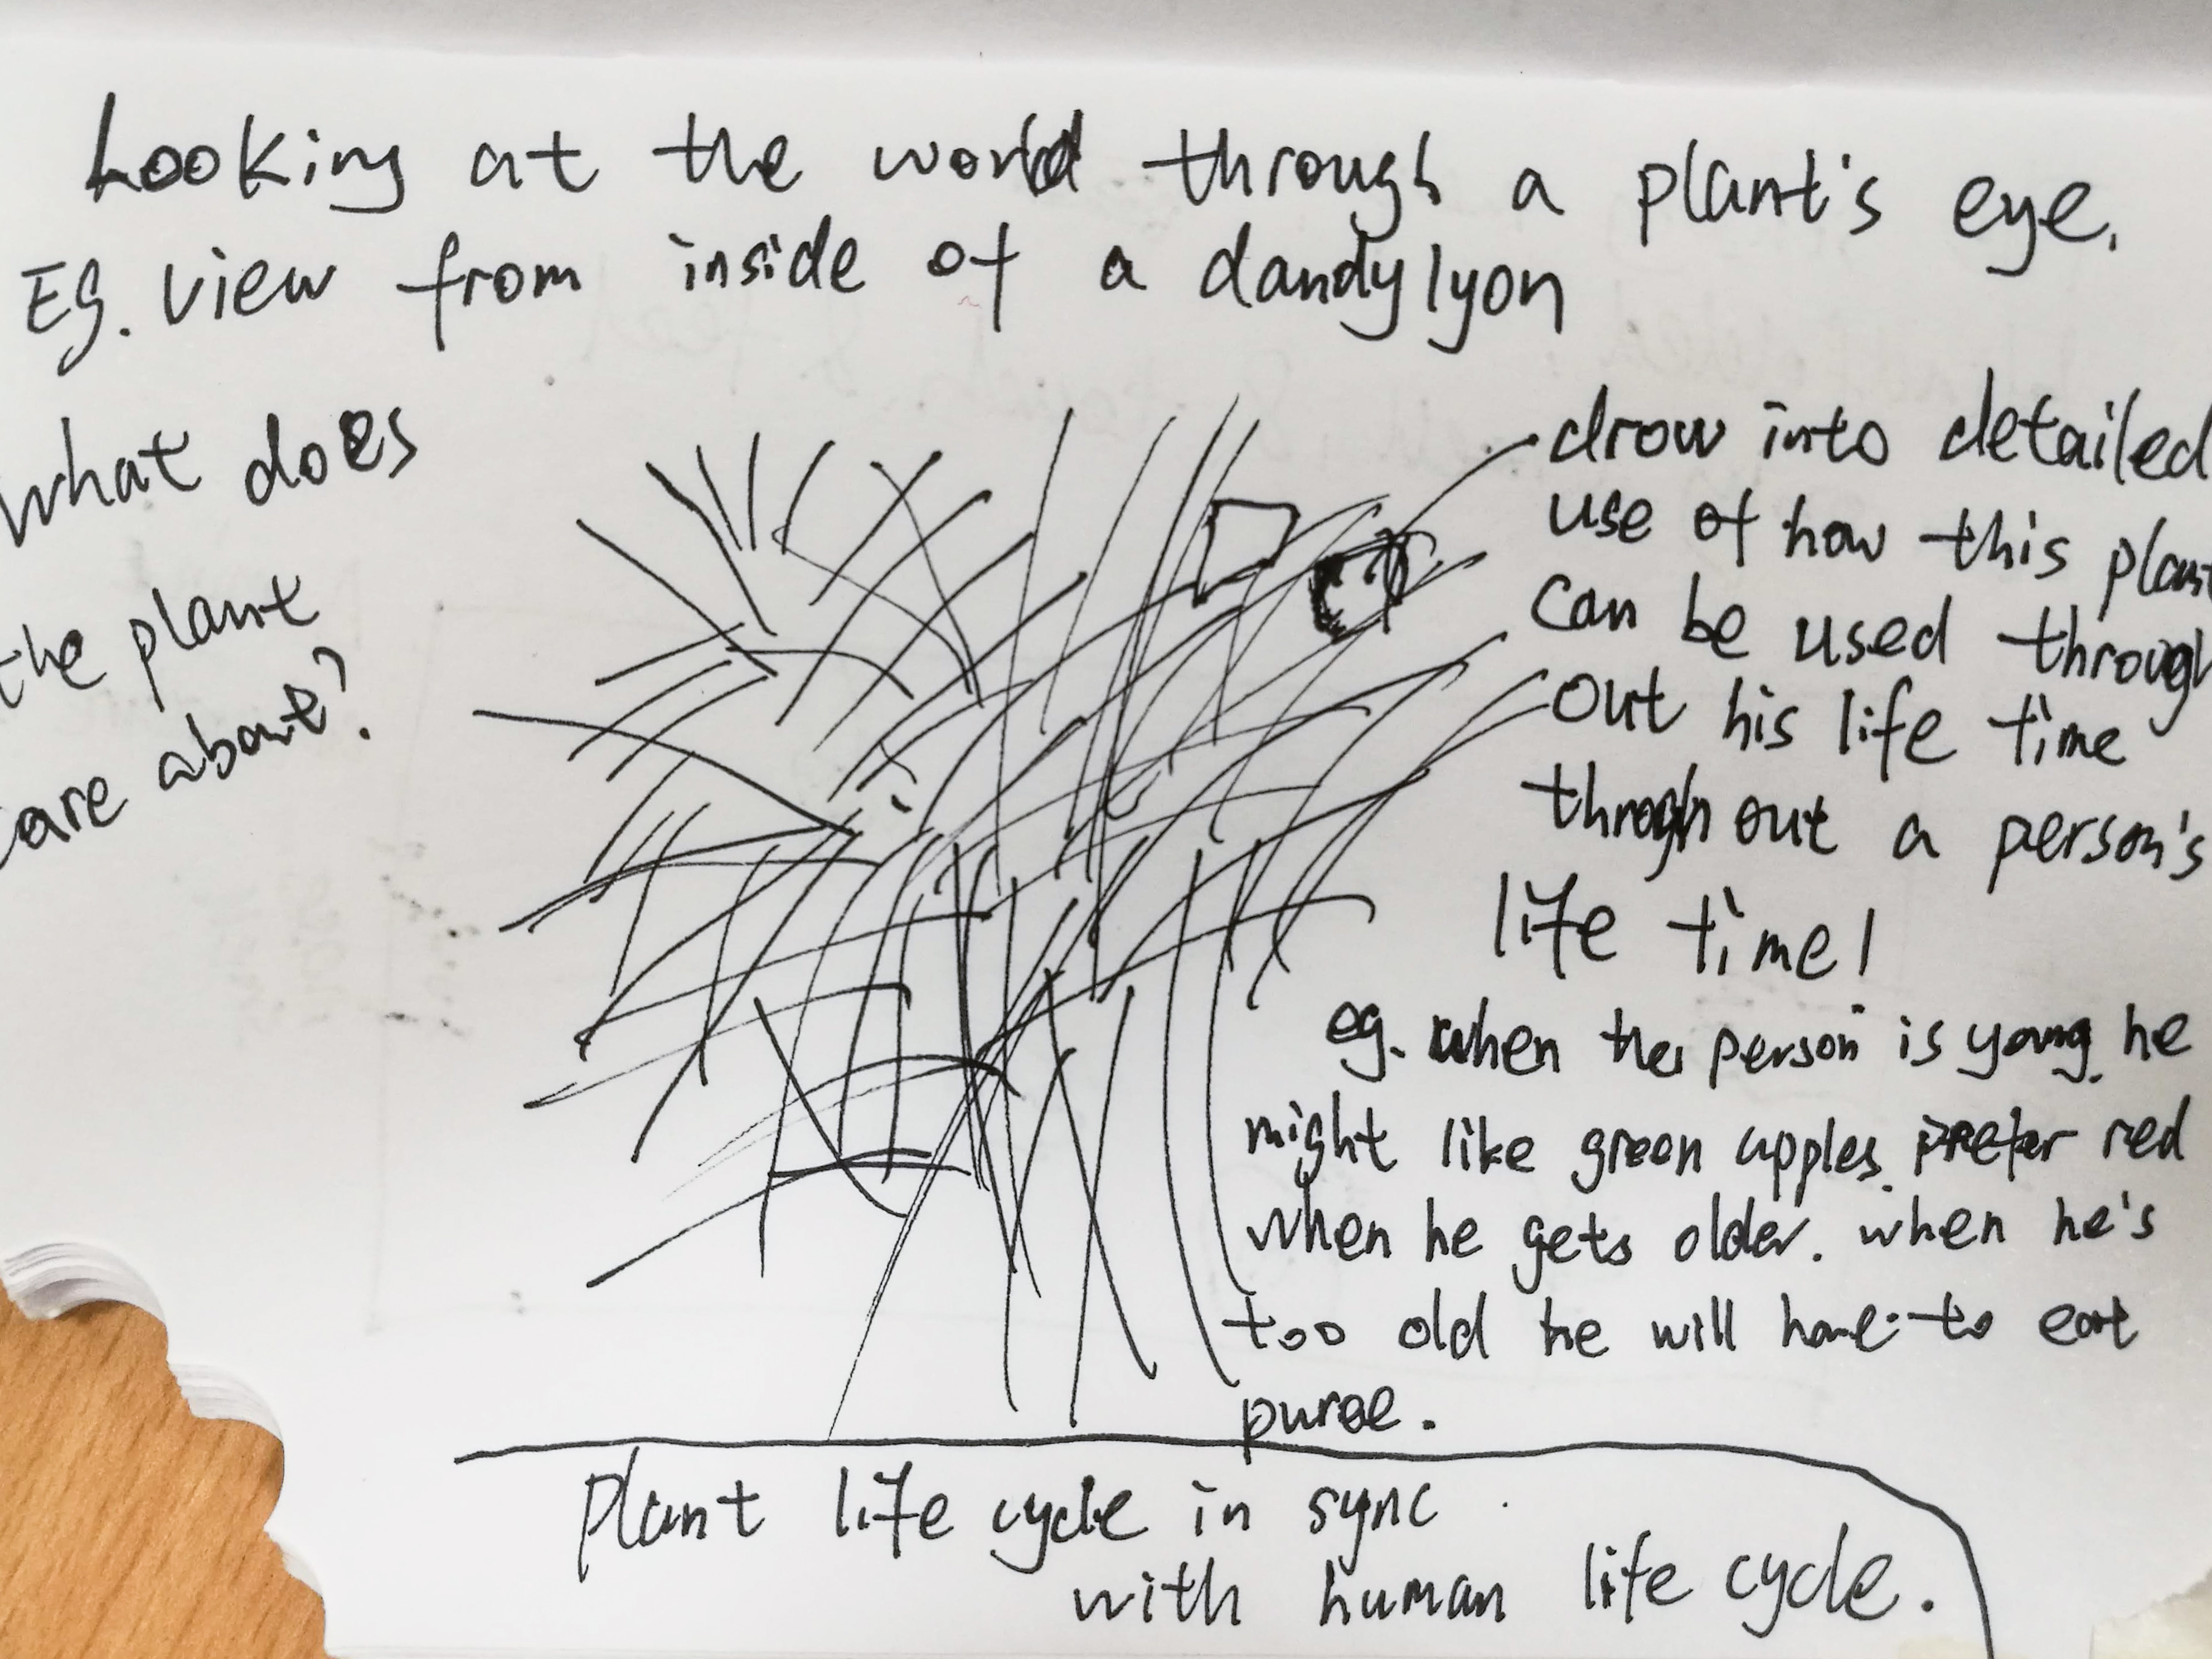 Looking at the world through a plant's eye.
Eg. view from inside of a dandylyon
what does
the plant
care about?
drow into detailed
use of how this plant
can be used through
out his life time
throgh out a person's
life time!
eg. when the person is young he
might like green apples. prefer red
when he gets older. when he's
too old he will have to eat
puree.
plant life cycle in sync
with human life cycle.